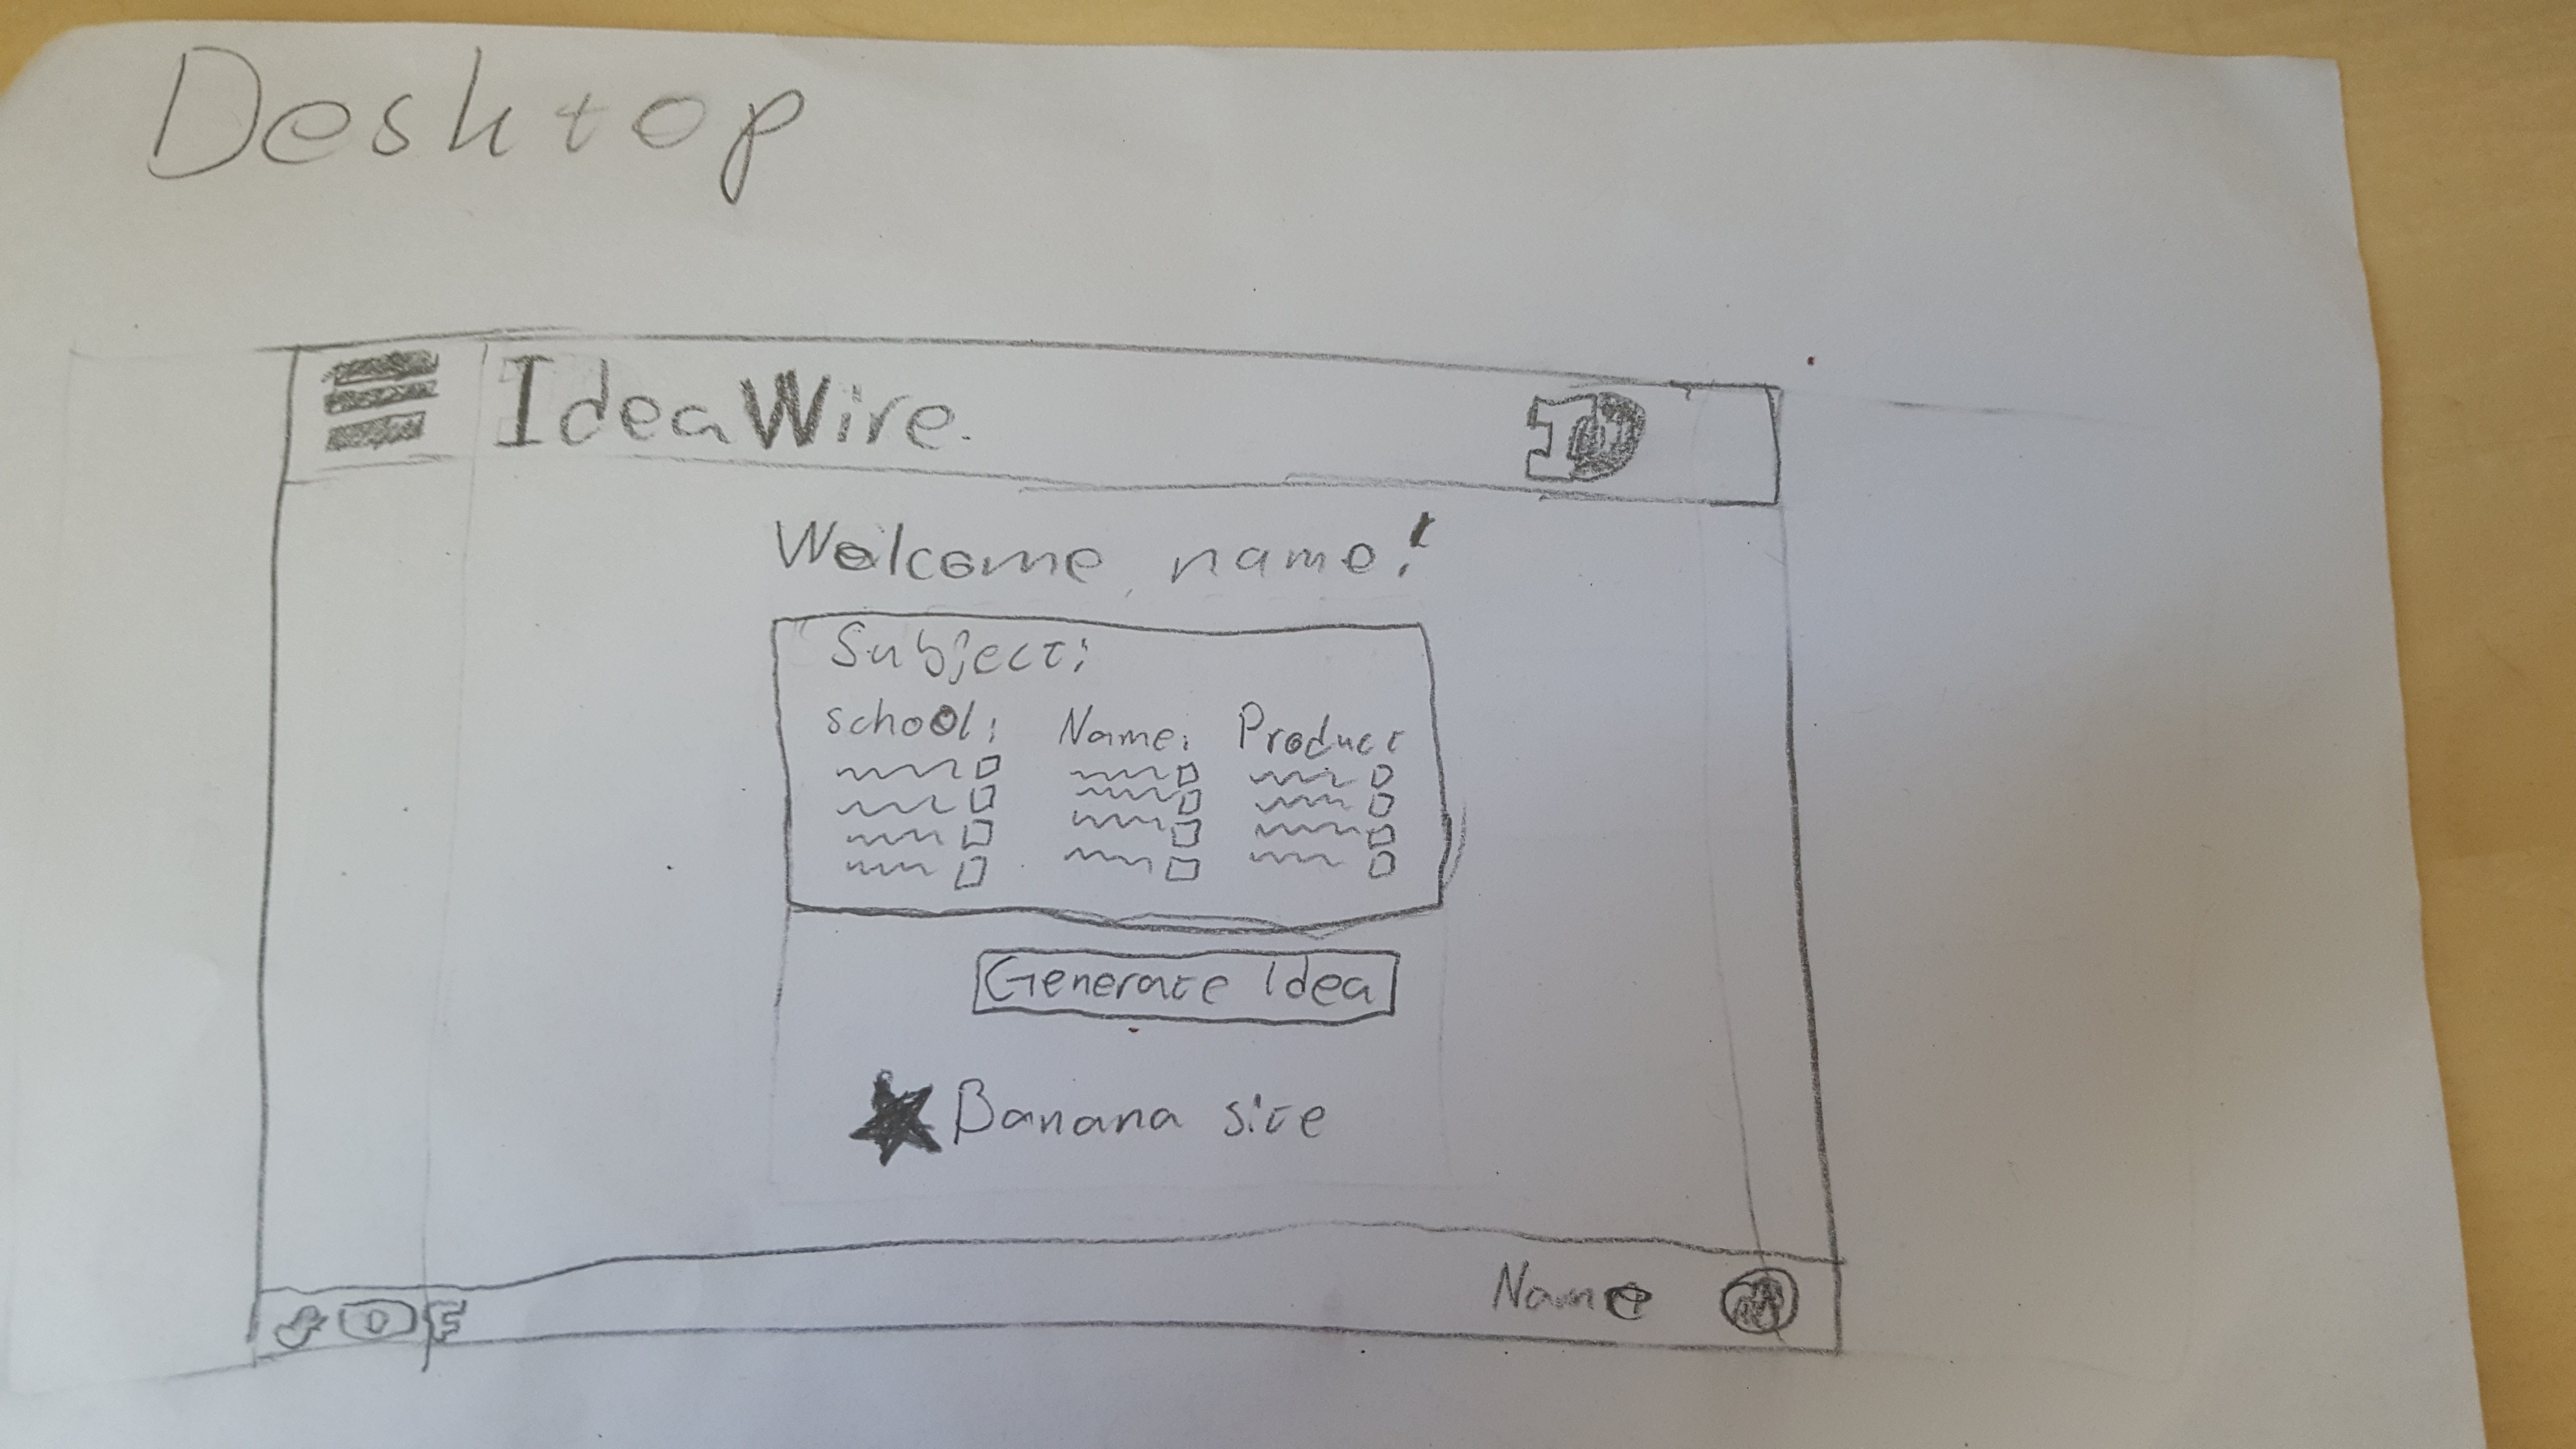 Desktop
IdeaWire.
Welcome, name!
Subject:
school: Name: Product
Generate Idea
Banana site
Name